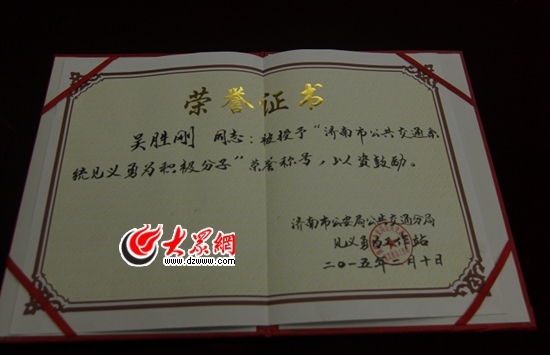 荣誉证书
吴胜刚 同志：被授予“济南市公共交通系
统见义勇为积极分子”荣誉称号，以资鼓励。
济南市公安局公共交通分局
见义勇为工作站
二〇一五年二月十日
大众網
www.dzwww.com